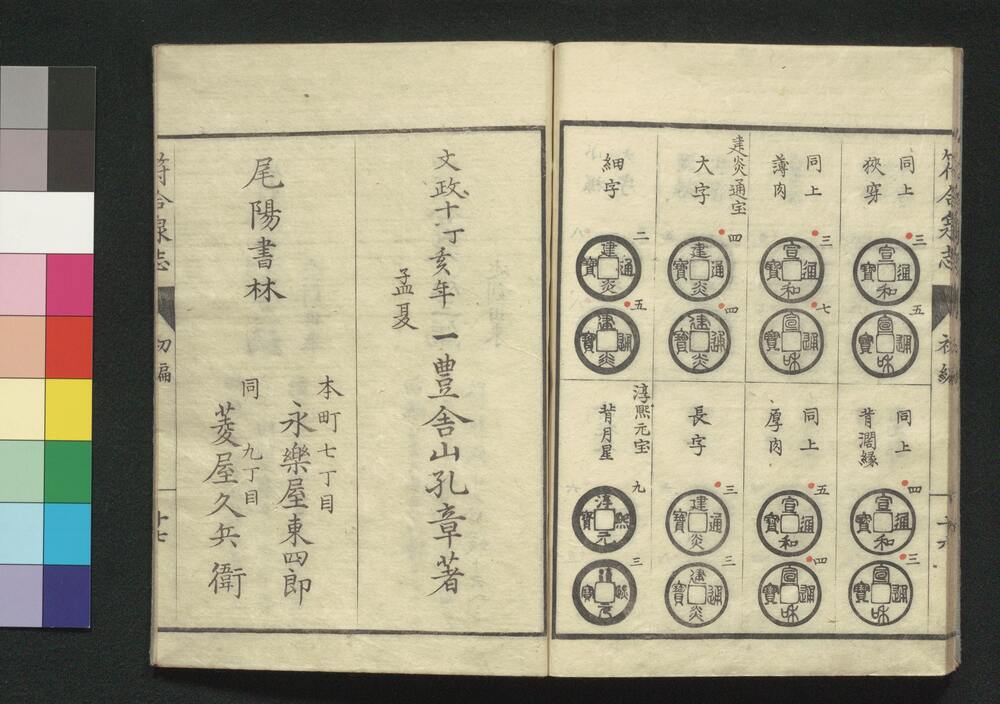 符合泉志
初編
十六
同上
狹穿
三
宣和通寶
五
宣和通寶
同上
背濶縁
四
宣和通寶
三
宣和通寶
同上
薄肉
三
宣和通寶
七
宣和通寶
同上
厚肉
五
宣和通寶
四
宣和通寶
建炎通宝
大字
四
建炎通寶
四
建炎通寶
長字
三
建炎通寶
三
建炎通寶
細字
二
建炎通寶
五
建炎通寶
淳熙元宝
背月星
九
淳熙元寶
三
淳熙元寶
文政十丁亥年
孟夏
一豊舎山孔章著
尾陽書林
本町七丁目
永樂屋東四郎
同 九丁目
菱屋久兵衛
符合泉志
初編
十七